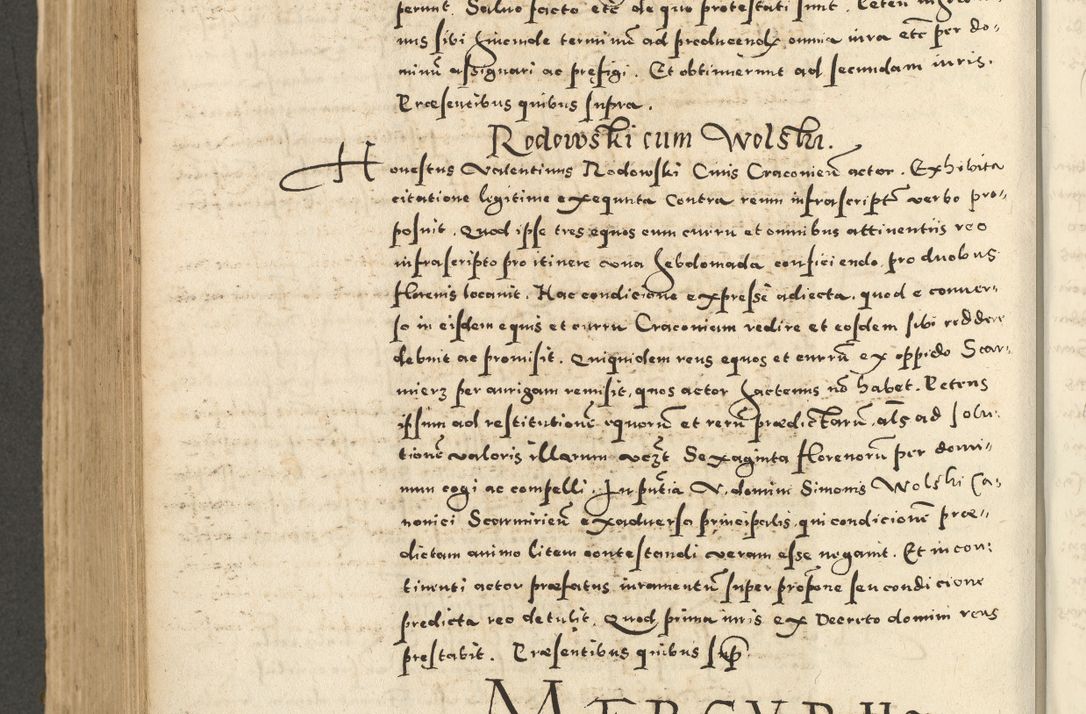 perunt. Saluo facto etc de quo protestati sunt.
nus sibi huiusmodi terminum ad producendum omnia iura etc per do-
minum assignari ac pręfigi. Et obtinuerunt ad secundam iuris.
Præsentibus quibus supra.
Rodowski cum Wolski.
Honestus Valentinus Rodowski Ciuis Cracoviên actor. Exhibita
citatione legitime exequuta Contra reum infrascriptũ verbo pro-
posuit. Quod ipse tres equos cum curru et omnibus attinentiis reo
infrascripto pro itinere vna hebdomada conficiendo, pro duobus
florenis locauit. Hac condicione expressè adiecta, quod e conuer-
so in eisdem equis et curru Cracouiam redire et eosdem sibi reddere
debuit ac promisit. Quiquidem reus equos et currũ ex oppido Scar-
mierz per aurigam remisit, quos actor hactenus nõ habet. Petens
ipsum ad restitutionẽ equorũ et rerũ prædictarũ, als ad solu-
tionẽ valoris illarum vczt Sexaginta florenorũ per domi-
num cogi ac compelli. In pñtia V. domini Simonis Wolski Ca-
nonici Scarmirieñ exaduerso principalis, qui condicionẽ præ-
dictam animo litem contestandi veram esse negauit. Et in con-
tinenti actor præfatus iuramentũ super propoñe seu condicione
predicta reo detulit. Quod prima iuris ex Decreto domini reus
pręstabit. Præsentibus quibus sup.
MERCVRII